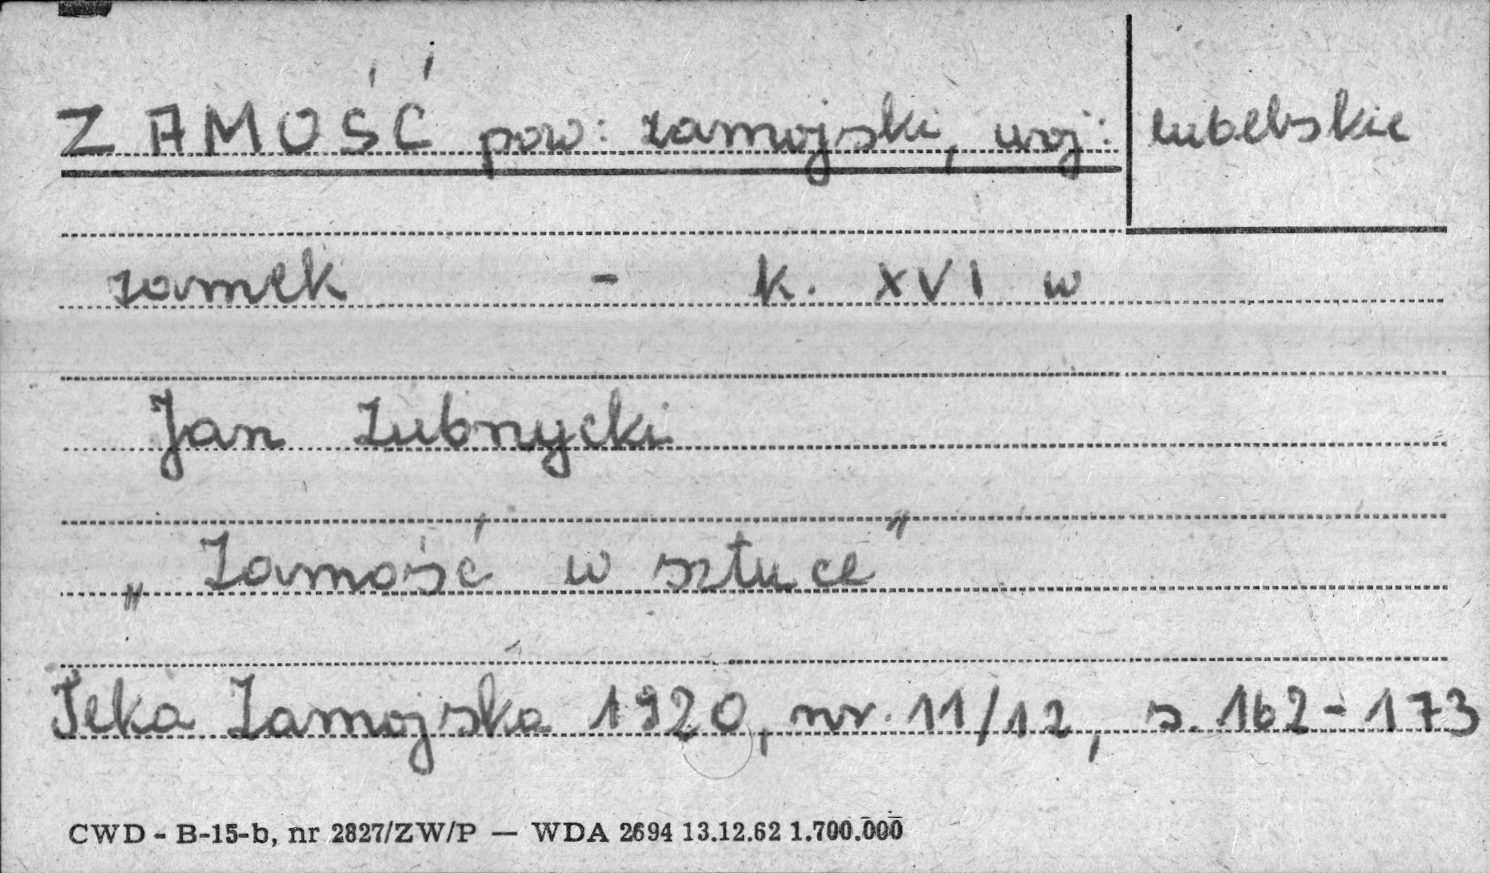 ZAMOŚĆ pow: zamojski, woj: lubelskie
zamek - k. XVI w
Jan Zubnycki
„Zamość w sztuce"
Teka Zamojska 1920, nr. 11/12, s. 162-173
CWD - B-15-b, nr 2827/ZW/P — WDA 2694 13.12.62 1.700.000